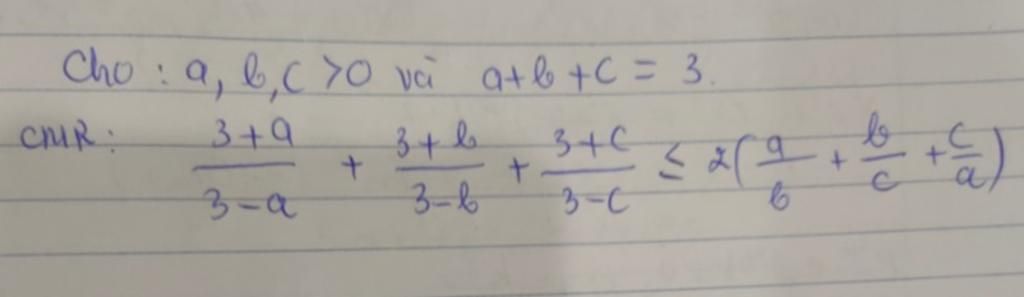 Cho : a, b, c >0 và a+b+c = 3.
CMR: \frac{3+a}{3-a} + \frac{3+b}{3-b} + \frac{3+c}{3-c} ≤ 2(\frac{a}{b} + \frac{b}{c} + \frac{c}{a})